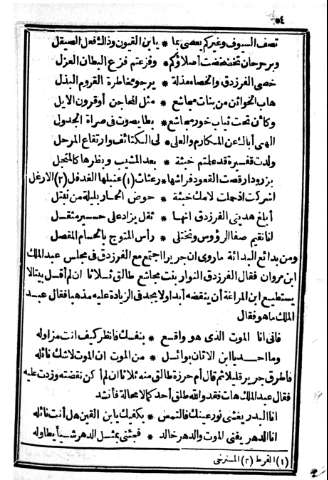 ٥٤
تصف السيوف وغيركم يعصى بها * يا ابن القيون وذاك فعل الصيقل
وبرحرحان تخضخضت أصلاؤكم * وفزعتم فزع البطان العزل
خصى الفرزدق والخصاء مذلة * يرجو مخاطرة القروم البزل
هاب الخواتن من بنات مجاشع * مثل المحاجن أو قرون الايل
وكأن تحت ثياب خور مجاشع * بطا يصوت في صراة الجدول
الهى أباك عن المكارم والعلى * لى الكتائف وارتفاع المرجل
ولدت قفيرة قد علمتم خبثة * بعد المشيب وبظرها كالمنجل
بزرود أرقصت القعود فراشها * رعثات (١) عنبلها الغدفل (٢) الارغل
أشركت اذ حملت لامك خبثة * حوض الحمار بليلة من نبتل
أبلغ هديتى الفرزدق انها * ثقل يزاد على حسير مثقل
انا نقيم صغا الرؤوس ونختلى * رأس المتوج بالحسام المقصل
ومن بدائع البدائة ماروى ان جريرا اجتمع مع الفرزدق في مجلس عبد الملك
ابن مروان فقال الفرزدق النوار بنت مجاشع طالق ثلاثا ان لم أقل بيتا لا
يستطيع ابن المراغة أن ينقضه أبدا ولا يجد في الزيادة عليه مذهبا فقال عبد
الملك ما هو فقال
فانى انا الموت الذى هو واقع * بنفسك فانظر كيف انت مزاوله
وما احد يا ابن الاتان بوائل * من الموت ان الموت لاشك نائله
فأطرق جرير قليلا ثم قال أم حرزة طالق منه ثلاثا ان لم أكن نقضته وزدت عليه
فقال عبد الملك هات فقد والله طلق أحد كما لا محالة فأنشد
انا البدر يغشى نور عينك فالتمس * بكفيك يا ابن القين هل أنت نائله
انا الدهر يفنى الموت والدهر خالد * فجئنى بمثل الدهر شيأ يطاوله
(١) القرط (٢) المسترخى